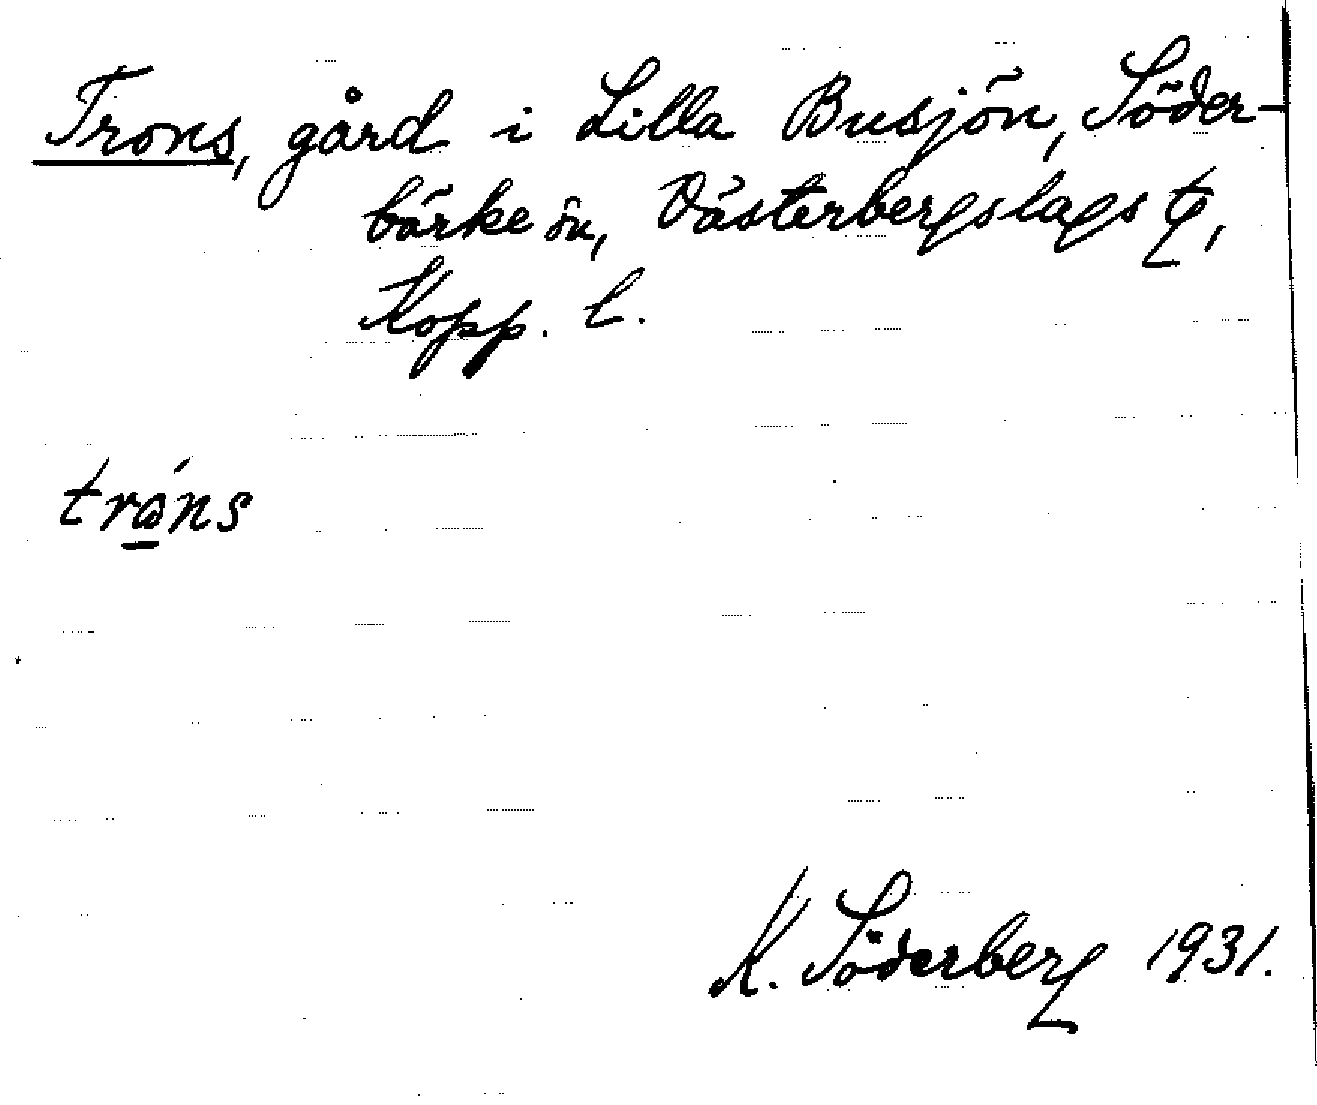 Trons, gård i Lilla Busjön, Söder-
bärke sn, Västerbergslags
Kopp. l.
tro̲ńs
K. Söderberg 1931.